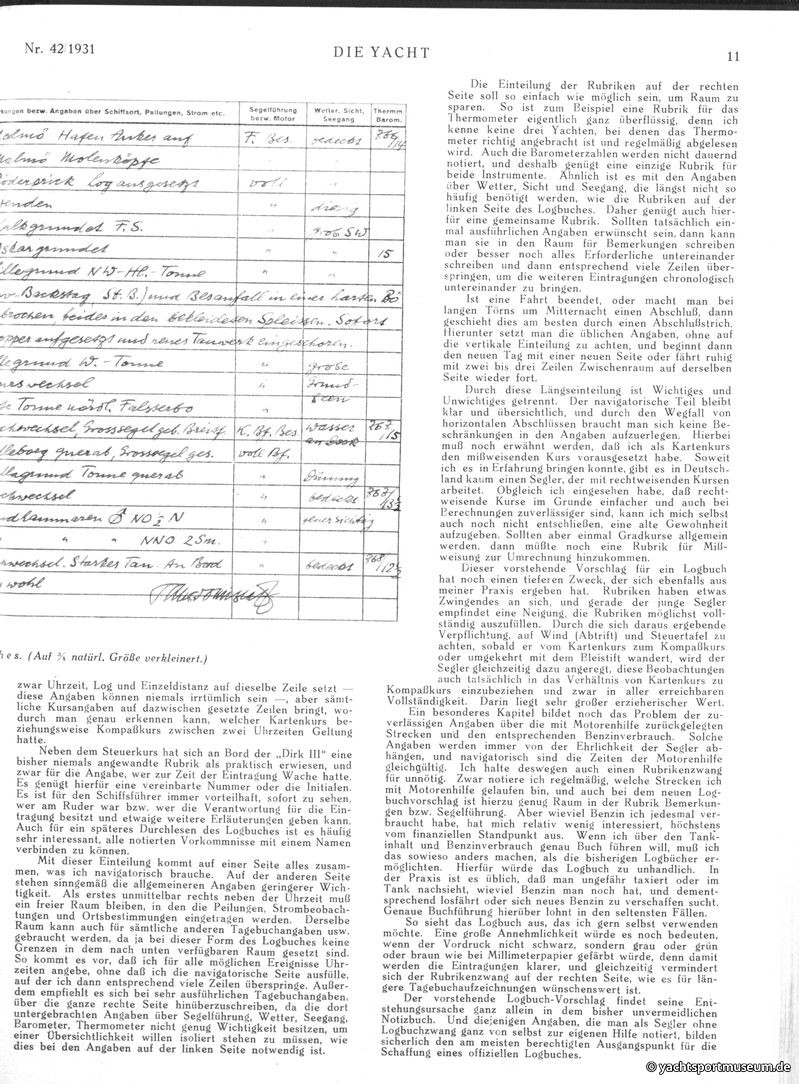 Nr. 42/1931
DIE YACHT
11
ungen bezw. Angaben über Schiffsort, Peilungen, Strom etc.
Segelführung bezw. Motor
Wetter, Sicht, Seegang
Thermm. Barom.
Hafen Anker auf
F. Bes.
bedeckt
Malmö Molenköpfe
Log ausgesetzt
voll
wenden
diesig
F. S.
SW
15
NW-Hl.-Tonne
Backstag, St. B.) und Besanfall in einer harten Bö
brochen beides in den bekleideten Spleissen. Sofort
aufgesetzt und neues Tauwerk
W.-Tonne
grobe
wechsel
Grund-
seen
Tonne nördl. Falsterbo
wechsel, Grosssegel geb.
K. Bf. Bes.
wasser
an Deck
querab, Grosssegel ges.
voll Bf.
Tonne querab
Dünung
wechsel
bedeckt
NO ½ N
" " NNO 2 Sm.
wechsel. Starker Tau. An Bord
bedeckt
wohl
hes. (Auf ¾ natürl. Größe verkleinert.)
zwar Uhrzeit, Log und Einzeldistanz auf dieselbe Zeile setzt —
diese Angaben können niemals irrtümlich sein —, aber sämt-
liche Kursangaben auf dazwischen gesetzte Zeilen bringt, wo-
durch man genau erkennen kann, welcher Kartenkurs be-
ziehungsweise Kompaßkurs zwischen zwei Uhrzeiten Geltung
hatte.
Neben dem Steuerkurs hat sich an Bord der „Dirk III" eine
bisher niemals angewandte Rubrik als praktisch erwiesen, und
zwar für die Angabe, wer zur Zeit der Eintragung Wache hatte.
Es genügt hierfür eine vereinbarte Nummer oder die Initialen.
Es ist für den Schiffsführer immer vorteilhaft, sofort zu sehen,
wer am Ruder war bzw. wer die Verantwortung für die Ein-
tragung besitzt und etwaige weitere Erläuterungen geben kann.
Auch für ein späteres Durchlesen des Logbuches ist es häufig
sehr interessant, alle notierten Vorkommnisse mit einem Namen
verbinden zu können.
Mit dieser Einteilung kommt auf einer Seite alles zusam-
men, was ich navigatorisch brauche. Auf der anderen Seite
stehen sinngemäß die allgemeineren Angaben geringerer Wich-
tigkeit. Als erstes unmittelbar rechts neben der Uhrzeit muß
ein freier Raum bleiben, in den die Peilungen, Strombeobach-
tungen und Ortsbestimmungen eingetragen werden. Derselbe
Raum kann auch für sämtliche anderen Tagebuchangaben usw.
gebraucht werden, da ja bei dieser Form des Logbuches keine
Grenzen in dem nach unten verfügbaren Raum gesetzt sind.
So kommt es vor, daß ich für alle möglichen Ereignisse Uhr-
zeiten angebe, ohne daß ich die navigatorische Seite ausfülle,
auf der ich dann entsprechend viele Zeilen überspringe. Außer-
dem empfiehlt es sich bei sehr ausführlichen Tagebuchangaben,
über die ganze rechte Seite hinüberzuschreiben, da die dort
untergebrachten Angaben über Segelführung, Wetter, Seegang,
Barometer, Thermometer nicht genug Wichtigkeit besitzen, um
einer Übersichtlichkeit willen isoliert stehen zu müssen, wie
dies bei den Angaben auf der linken Seite notwendig ist.
Die Einteilung der Rubriken auf der rechten
Seite soll so einfach wie möglich sein, um Raum zu
sparen. So ist zum Beispiel eine Rubrik für das
Thermometer eigentlich ganz überflüssig, denn ich
kenne keine drei Yachten, bei denen das Thermo-
meter richtig angebracht ist und regelmäßig abgelesen
wird. Auch die Barometerzahlen werden nicht dauernd
notiert, und deshalb genügt eine einzige Rubrik für
beide Instrumente. Ähnlich ist es mit den Angaben
über Wetter, Sicht und Seegang, die längst nicht so
häufig benötigt werden, wie die Rubriken auf der
linken Seite des Logbuches. Daher genügt auch hier-
für eine gemeinsame Rubrik. Sollten tatsächlich ein-
mal ausführlichen Angaben erwünscht sein, dann kann
man sie in den Raum für Bemerkungen schreiben
oder besser noch alles Erforderliche untereinander
schreiben und dann entsprechend viele Zeilen über-
springen, um die weiteren Eintragungen chronologisch
untereinander zu bringen.
Ist eine Fahrt beendet, oder macht man bei
langen Törns um Mitternacht einen Abschluß, dann
geschieht dies am besten durch einen Abschlußstrich.
Hierunter setzt man die üblichen Angaben, ohne auf
die vertikale Einteilung zu achten, und beginnt dann
den neuen Tag mit einer neuen Seite oder fährt ruhig
mit zwei bis drei Zeilen Zwischenraum auf derselben
Seite wieder fort.
Durch diese Längseinteilung ist Wichtiges und
Unwichtiges getrennt. Der navigatorische Teil bleibt
klar und übersichtlich, und durch den Wegfall von
horizontalen Abschlüssen braucht man sich keine Be-
schränkungen in den Angaben aufzuerlegen. Hierbei
muß noch erwähnt werden, daß ich als Kartenkurs
den mißweisenden Kurs vorausgesetzt habe. Soweit
ich es in Erfahrung bringen konnte, gibt es in Deutsch-
land kaum einen Segler, der mit rechtweisenden Kursen
arbeitet. Obgleich ich eingesehen habe, daß recht-
weisende Kurse im Grunde einfacher und auch bei
Berechnungen zuverlässiger sind, kann ich mich selbst
auch noch nicht entschließen, eine alte Gewohnheit
aufzugeben. Sollten aber einmal Gradkurse allgemein
werden, dann müßte noch eine Rubrik für Miß-
weisung zur Umrechnung hinzukommen.
Dieser vorstehende Vorschlag für ein Logbuch
hat noch einen tieferen Zweck, der sich ebenfalls aus
meiner Praxis ergeben hat. Rubriken haben etwas
Zwingendes an sich, und gerade der junge Segler
empfindet eine Neigung, die Rubriken möglichst voll-
ständig auszufüllen. Durch die sich daraus ergebende
Verpflichtung, auf Wind (Abtrift) und Steuertafel zu
achten, sobald er vom Kartenkurs zum Kompaßkurs
oder umgekehrt mit dem Bleistift wandert, wird der
Segler gleichzeitig dazu angeregt, diese Beobachtungen
auch tatsächlich in das Verhältnis von Kartenkurs zu
Kompaßkurs einzubeziehen und zwar in aller erreichbaren
Vollständigkeit. Darin liegt sehr großer erzieherischer Wert.
Ein besonderes Kapitel bildet noch das Problem der zu-
verlässigen Angaben über die mit Motorenhilfe zurückgelegten
Strecken und den entsprechenden Benzinverbrauch. Solche
Angaben werden immer von der Ehrlichkeit der Segler ab-
hängen, und navigatorisch sind die Zeiten der Motorenhilfe
gleichgültig. Ich halte deswegen auch einen Rubrikenzwang
für unnötig. Zwar notiere ich regelmäßig, welche Strecken ich
mit Motorenhilfe gelaufen bin, und auch bei dem neuen Log-
buchvorschlag ist hierzu genug Raum in der Rubrik Bemerkun-
gen bzw. Segelführung. Aber wieviel Benzin ich jedesmal ver-
braucht habe, hat mich relativ wenig interessiert, höchstens
vom finanziellen Standpunkt aus. Wenn ich über den Tank-
inhalt und Benzinverbrauch genau Buch führen will, muß ich
das sowieso anders machen, als die bisherigen Logbücher er-
möglichten. Hierfür würde das Logbuch zu unhandlich. In
der Praxis ist es üblich, daß man ungefähr taxiert oder im
Tank nachsieht, wieviel Benzin man noch hat, und dement-
sprechend losfährt oder sich neues Benzin zu verschaffen sucht.
Genaue Buchführung hierüber lohnt in den seltensten Fällen.
So sieht das Logbuch aus, das ich gern selbst verwenden
möchte. Eine große Annehmlichkeit würde es noch bedeuten,
wenn der Vordruck nicht schwarz, sondern grau oder grün
oder braun wie bei Millimeterpapier gefärbt würde, denn damit
werden die Eintragungen klarer, und gleichzeitig vermindert
sich der Rubrikenzwang auf der rechten Seite, wie es für län-
gere Tagebuchaufzeichnungen wünschenswert ist.
Der vorstehende Logbuch-Vorschlag findet seine Ent-
stehungsursache ganz allein in dem bisher unvermeidlichen
Notizbuch. Und diejenigen Angaben, die man als Segler ohne
Logbuchzwang ganz von selbst zur eigenen Hilfe notiert, bilden
sicherlich den am meisten berechtigten Ausgangspunkt für die
Schaffung eines offiziellen Logbuches.
© yachtsportmuseum.de